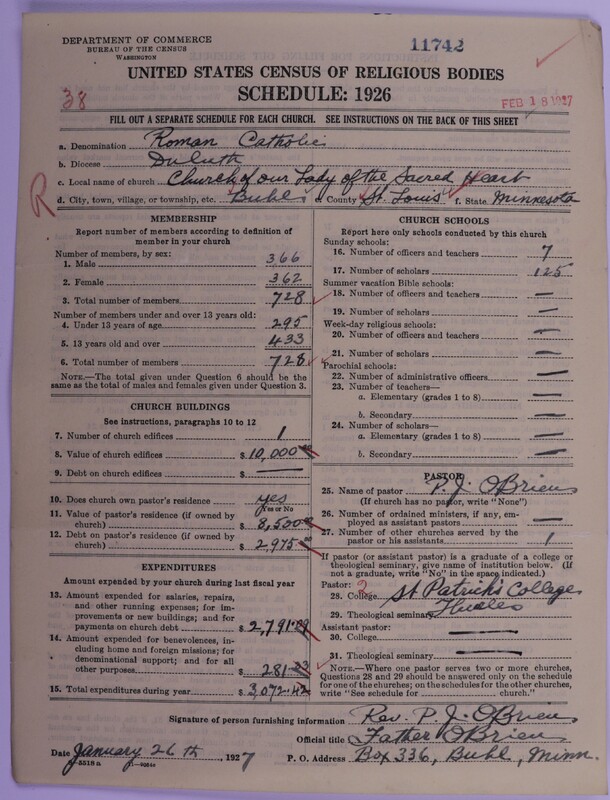 DEPARTMENT OF COMMERCE
BUREAU OF THE CENSUS
WASHINGTON
11742
UNITED STATES CENSUS OF RELIGIOUS BODIES
SCHEDULE: 1926
38
FEB 18 1927
FILL OUT A SEPARATE SCHEDULE FOR EACH CHURCH. SEE INSTRUCTIONS ON THE BACK OF THIS SHEET
a. Denomination Roman Catholic
b. Diocese Duluth
c. Local name of church Church of our Lady of the Sacred Heart
R
d. City, town, village, or township, etc. Buhl e. County St. Louis f. State Minnesota
MEMBERSHIP
Report number of members according to definition of
member in your church
Number of members, by sex:
1. Male 366
2. Female 362
3. Total number of members 728
Number of members under and over 13 years old:
4. Under 13 years of age 295
5. 13 years old and over 433
6. Total number of members 728
NOTE.—The total given under Question 6 should be the
same as the total of males and females given under Question 3.
CHURCH BUILDINGS
See instructions, paragraphs 10 to 12
7. Number of church edifices 1
8. Value of church edifices $ 10,000 00
9. Debt on church edifices $ —
10. Does church own pastor's residence yes
Yes or No
11. Value of pastor's residence (if owned by
church) $ 8,500 00
12. Debt on pastor's residence (if owned by
church) $ 2,975 00
EXPENDITURES
Amount expended by your church during last fiscal year
13. Amount expended for salaries, repairs,
and other running expenses; for im-
provements or new buildings; and for
payments on church debt $ 2,791.29
14. Amount expended for benevolences, in-
cluding home and foreign missions; for
denominational support; and for all
other purposes $ 281
15. Total expenditures during year $ 3,072.42
CHURCH SCHOOLS
Report here only schools conducted by this church
Sunday schools:
16. Number of officers and teachers 7
17. Number of scholars 125
Summer vacation Bible schools:
18. Number of officers and teachers —
19. Number of scholars —
Week-day religious schools:
20. Number of officers and teachers —
21. Number of scholars —
Parochial schools:
22. Number of administrative officers —
23. Number of teachers—
a. Elementary (grades 1 to 8) —
b. Secondary —
24. Number of scholars—
a. Elementary (grades 1 to 8) —
b. Secondary —
PASTOR
25. Name of pastor P. J. O'Brien
(If church has no pastor, write "None")
26. Number of ordained ministers, if any, em-
ployed as assistant pastors —
27. Number of other churches served by the
pastor or his assistants 1
If pastor (or assistant pastor) is a graduate of a college or
theological seminary, give name of institution below. (If
not a graduate, write "No" in the space indicated.)
Pastor: 2
28. College St Patrick's College
29. Theological seminary Thurles
Assistant pastor:
30. College —
31. Theological seminary —
NOTE.—Where one pastor serves two or more churches,
Questions 28 and 29 should be answered only on the schedule
for one of the churches; on the schedules for the other churches,
write "See schedule for church."
Signature of person furnishing information Rev. P. J. O'Brien
Official title Father O'Brien
Date January 26th, 1927 P. O. Address Box 336, Buhl, Minn.